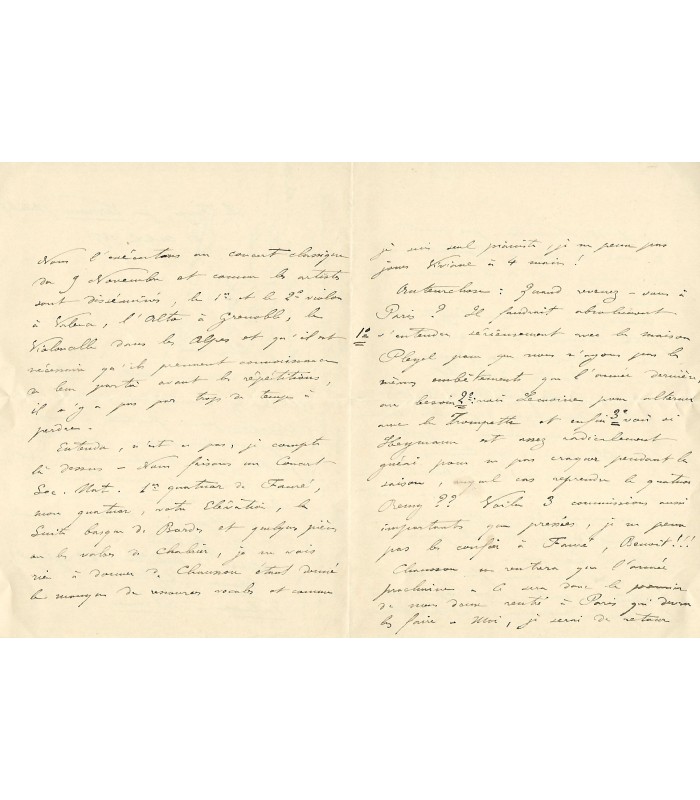 Nous l'exécutons au concert classique
du 9 Novembre et comme les artistes
sont disséminés, le 1er et le 2e violon
à Valence, l'Alto à Grenoble, le
Violoncelle dans les Alpes et qu'il est
nécessaire qu'ils prennent connaissance
de leur partie avant les répétitions,
il n'y a pas trop de temps à
perdre.
Entendu, n'est-ce pas, je compte
là dessus – Nous faisons un Concert
Soc. Nat. 1er quatuor de Fauré,
mon quatuor, votre Elévation, la
Suite basque de Bordes et quelques pièces
ou les valses de Chabrier, je ne vois
rien à donner de Chausson étant donné
le manque de ressources vocales et comme
je suis seul pianiste, je ne peux pas
jouer Viviane à 4 mains!
Autre chose: Quand revenez-vous à
Paris? Il faudrait absolument
1o s'entendre sérieusement avec la maison
Pleyel pour que nous n'ayons pas les
mêmes embêtements que l'année dernière
2o voir Lemoine pour alterner
avec la Trompette et enfin 3o voir si
Heymann est assez radicalement
guéri pour ne pas craquer pendant la
saison, auquel cas reprendre le quatuor
Remy?? Voilà 3 commissions aussi
importantes que pressées, je ne peux
pas les confier à Fauré, Benoit!!!
Chausson ne rentrera que l'année
prochaine – Ce sera donc le premier
de nous deux rentré à Paris qui devra
les faire – Moi, je serai de retour